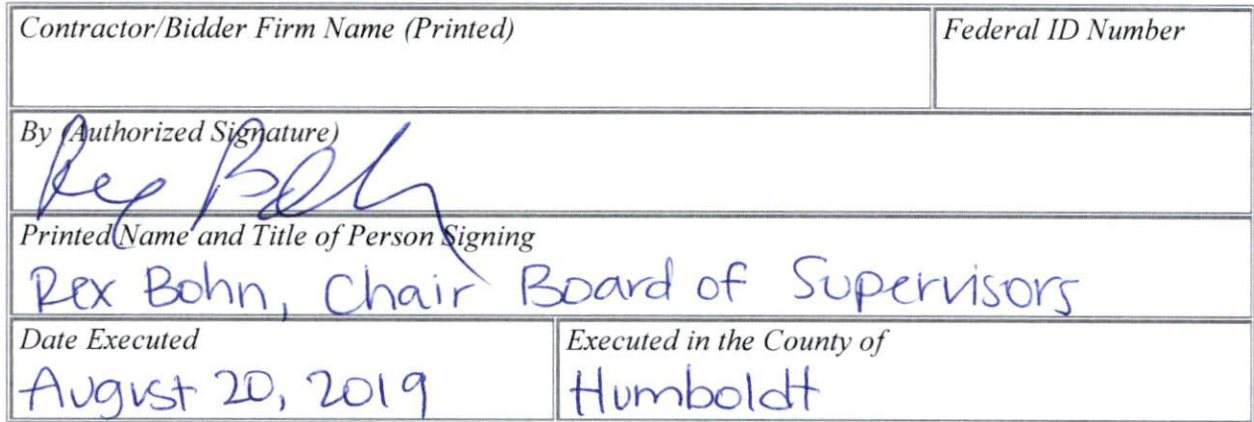 Contractor/Bidder Firm Name (Printed)
Federal ID Number
By (Authorized Signature)
Rex Bohn
Printed Name and Title of Person Signing
Rex Bohn, Chair Board of Supervisors
Date Executed
August 20, 2019
Executed in the County of
Humboldt